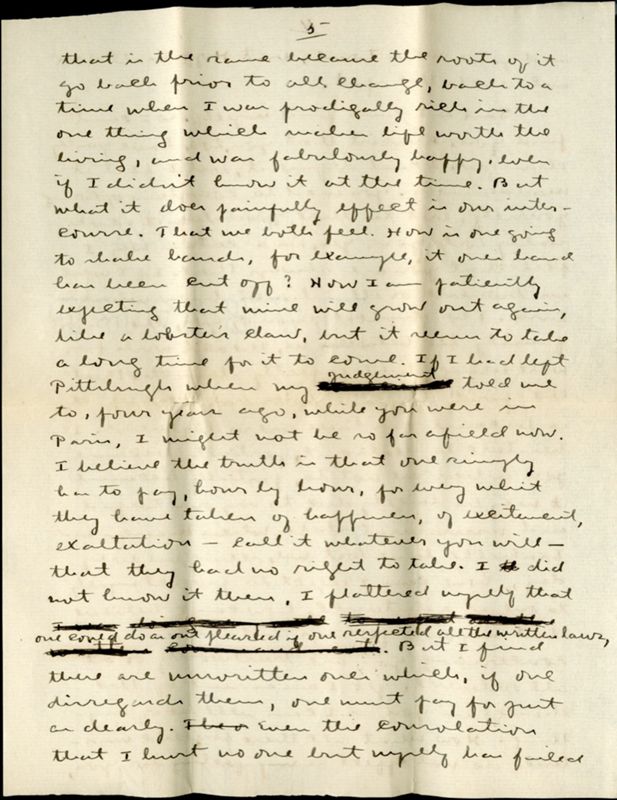 5
that is the same because the roots of it
go back prior to all change, back to a
time when I was prodigally rich in the
one thing which makes life worth the
living, and was fabulously happy, even
if I didn't know it at the time. But
what it does painfully effect is our inter-
course. That we both feel. How is one going
to shake hands, for example, if one's hand
has been cut off? Now I am patiently
expecting that mine will grow out again,
like a lobster's claw, but it seems to take
a long time for it to come. If I had left
Pittsburgh when my judgement told me
to, four years ago, while you were in
Paris, I might not be so far afield now.
I believe the truth is that one simply
has to pay, hour by hour, for every whit
they have taken of happiness, of excitement,
exaltation — call it whatever you will —
that they had no right to take. I did
not know it then, I flattered myself that
one could do as one pleased if one respected all the written laws,
. But I find
there are unwritten ones which, if one
disregards them, one must pay for just
as dearly. Even the consolation
that I hurt no one but myself has failed